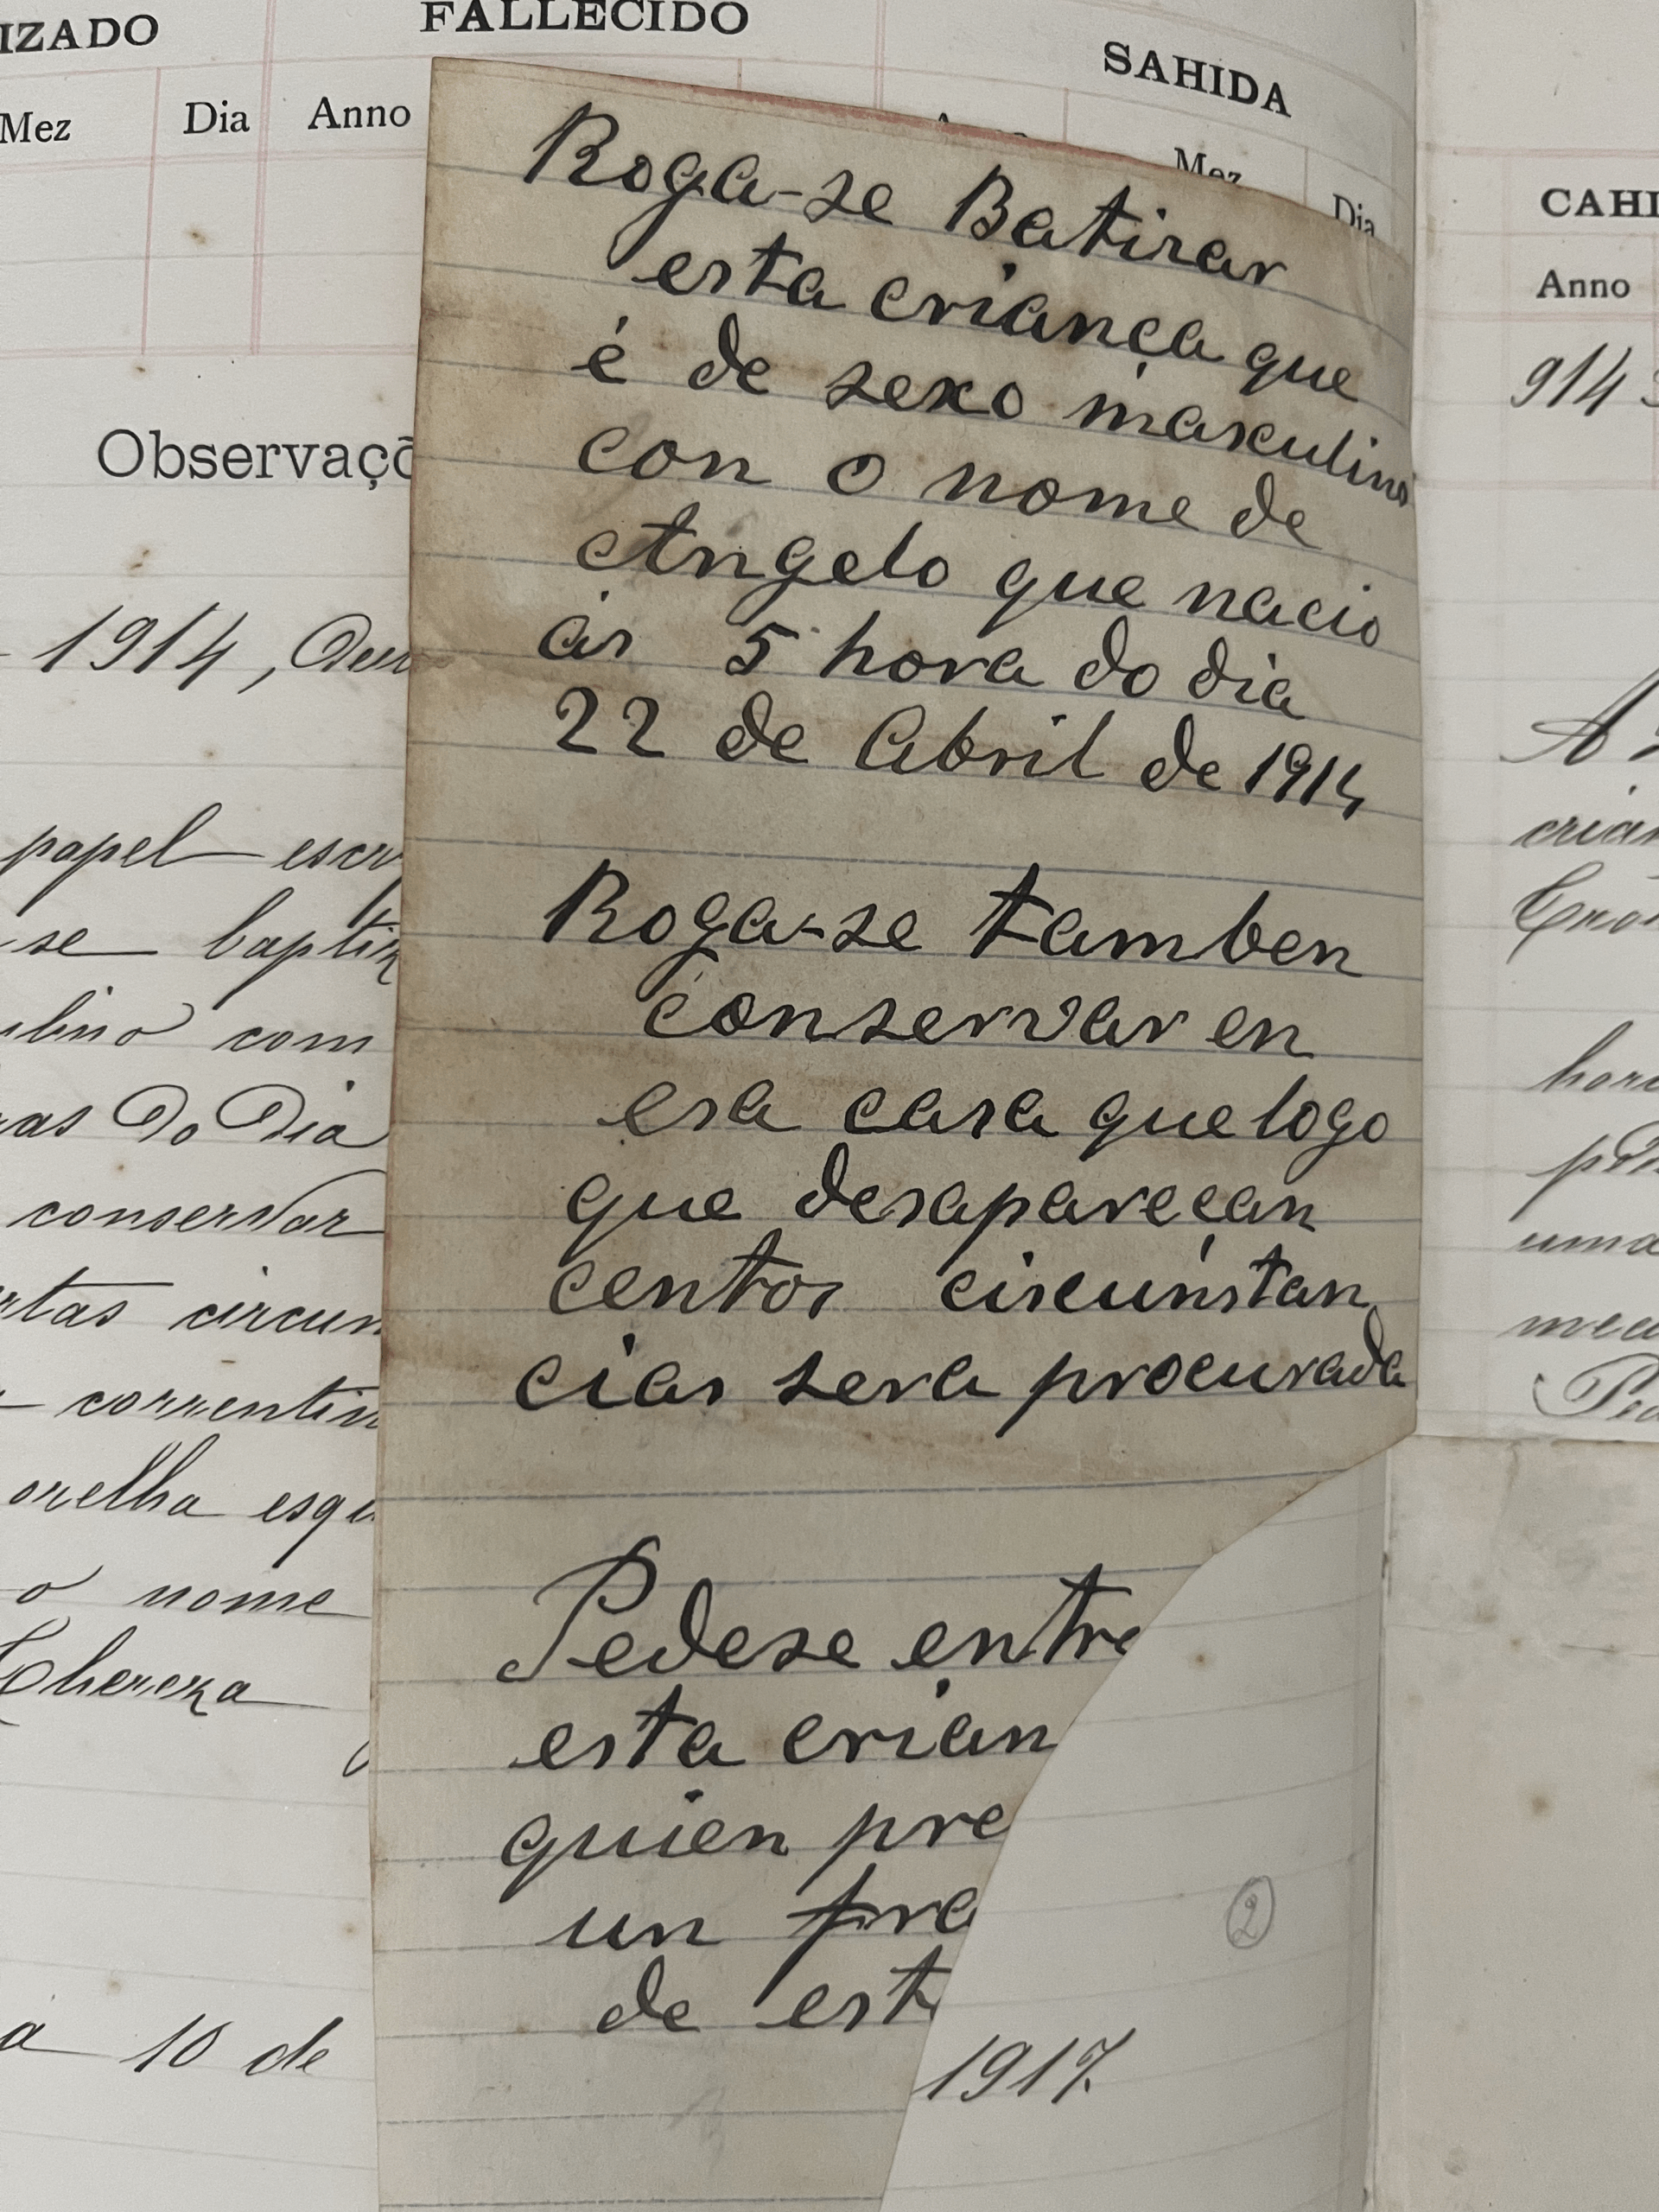 IZADO
FALLECIDO
SAHIDA
Mez
Dia
Anno
Mez
Dia
CAHI
Anno
914
Observaçõ
1914,
papel escr
se baptiz
ulino com
as do Dia
conservar
rtas circun
correntin
orelha esqu
o nome
Thereza
a 10 de
Roga-se Batirar
esta criança que
é de sexo masculino
con o nome de
Angelo que nacio
ás 5 hora do dia
22 de Abril de 1914
Roga-se tamben
conservar en
esa casa que logo
que desapareçan
centos circunstan
cias sera procurada
Pedese entre
esta crian
quien pre
un pre
de est
1917.
2
A
crian
hora
uma